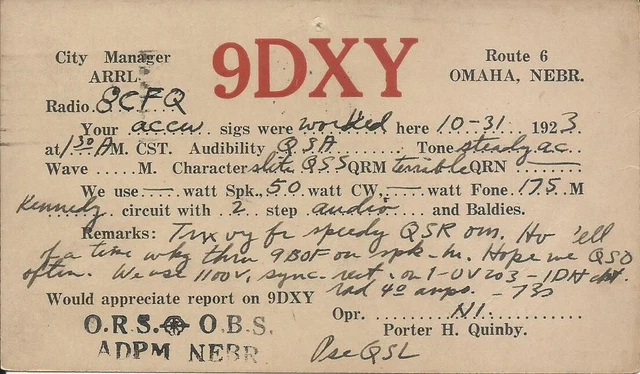 City Manager
ARRL.
9DXY
Route 6
OMAHA, NEBR.
Radio. 8CFQ
Your accw sigs were worked here 10-31 1923
at 1:30 A M. CST. Audibility QSA Tone steady ac.
Wave ..... M. Character slite QSS QRM terrible QRN —
We use — watt Spk., 50 watt CW, — watt Fone. 175 M
Kennedy circuit with 2 step audio and Baldies.
Remarks: Tnx vy fr speedy QSR om. Hv 'ell
of a time wkg thru 9BOF on spk - hi. Hope we QSO
often. We use 1100V. sync. rect. on 1-UV203 - 1DH ckt.
Would appreciate report on 9DXY rad 4o amps. - 73s
Opr. HI.
Porter H. Quinby.
O.R.S. O.B.S.
ADPM NEBR
Pse QSL